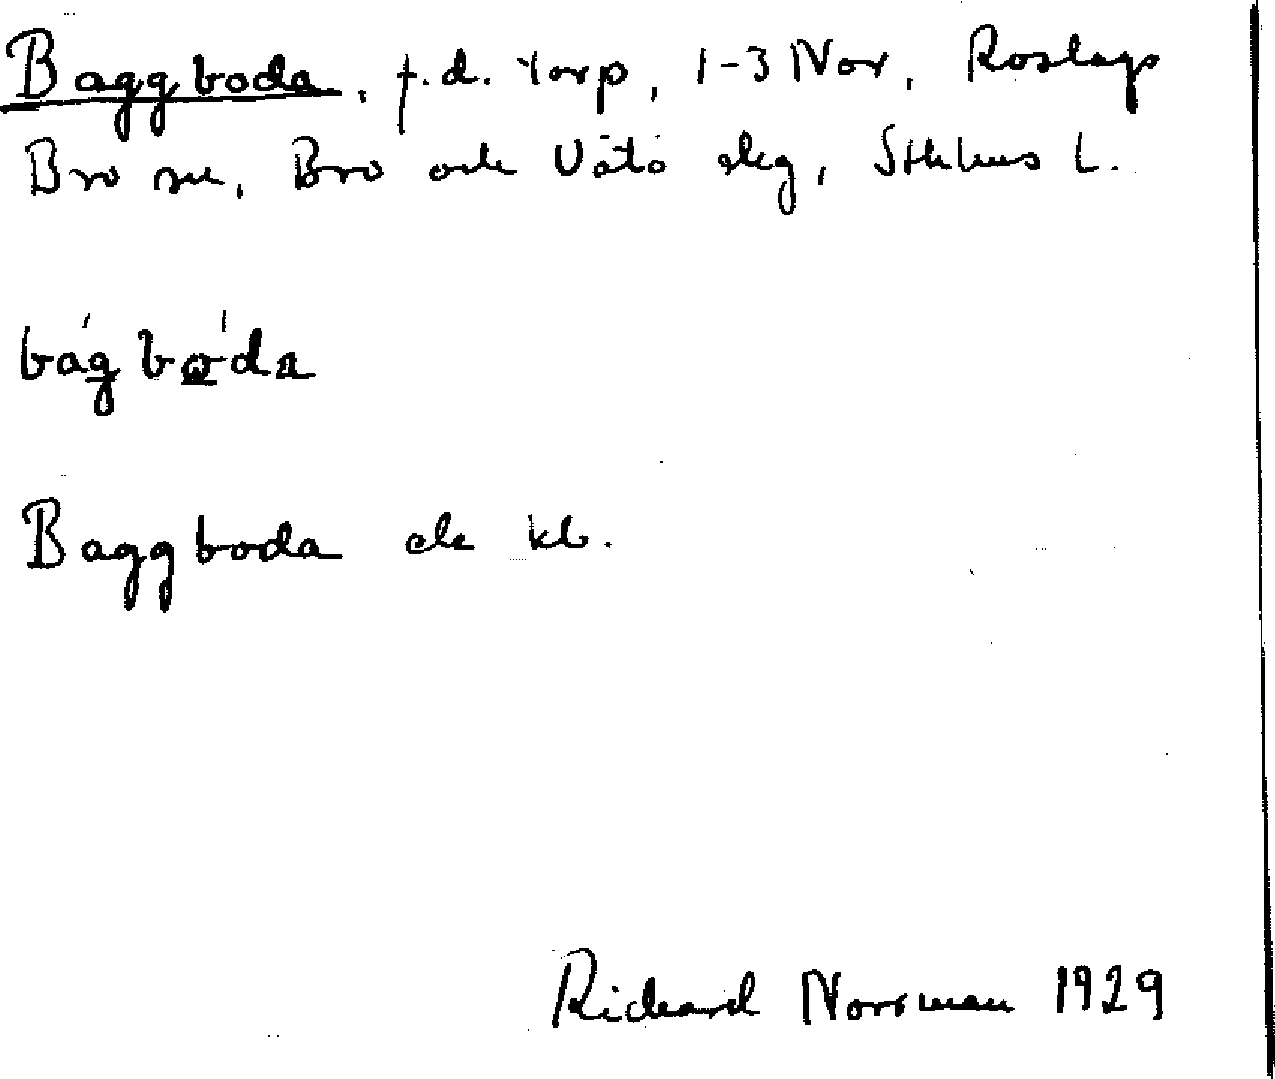 Baggboda, f.d. torp, 1-3 Nor, Roslags
Bro sn, Bro och Vätö skg, Sthlms L.
Baggboda ek kb.
Rickard Norrman 1929